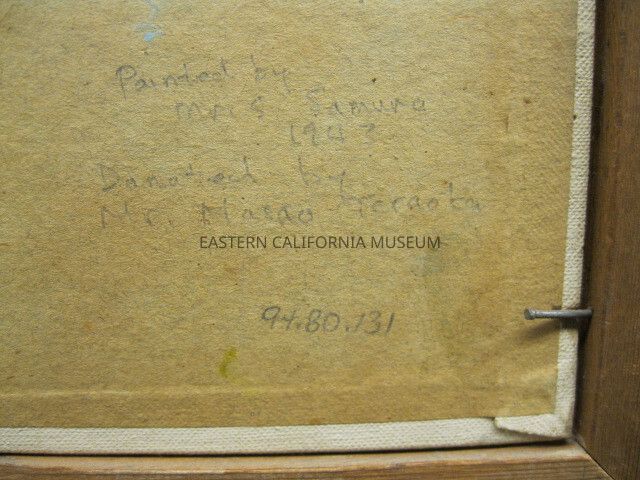 Painted by
Mr. S. Samura
1943
Donated by
Mr. Masao Teraoka
EASTERN CALIFORNIA MUSEUM
94.80.131